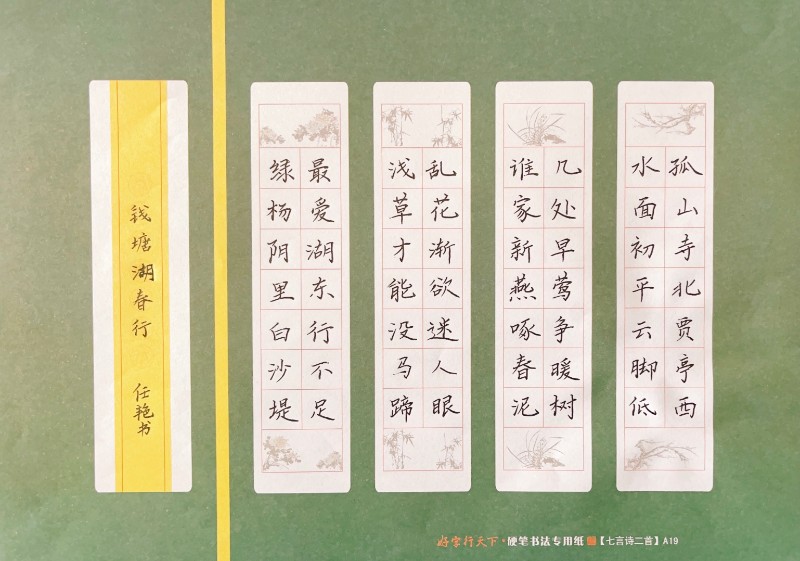 孤山寺北贾亭西
水面初平云脚低
几处早莺争暖树
谁家新燕啄春泥
乱花渐欲迷人眼
浅草才能没马蹄
最爱湖东行不足
绿杨阴里白沙堤
钱塘湖春行
任艳书
好字行天下·硬笔书法专用纸【七言诗二首】A19